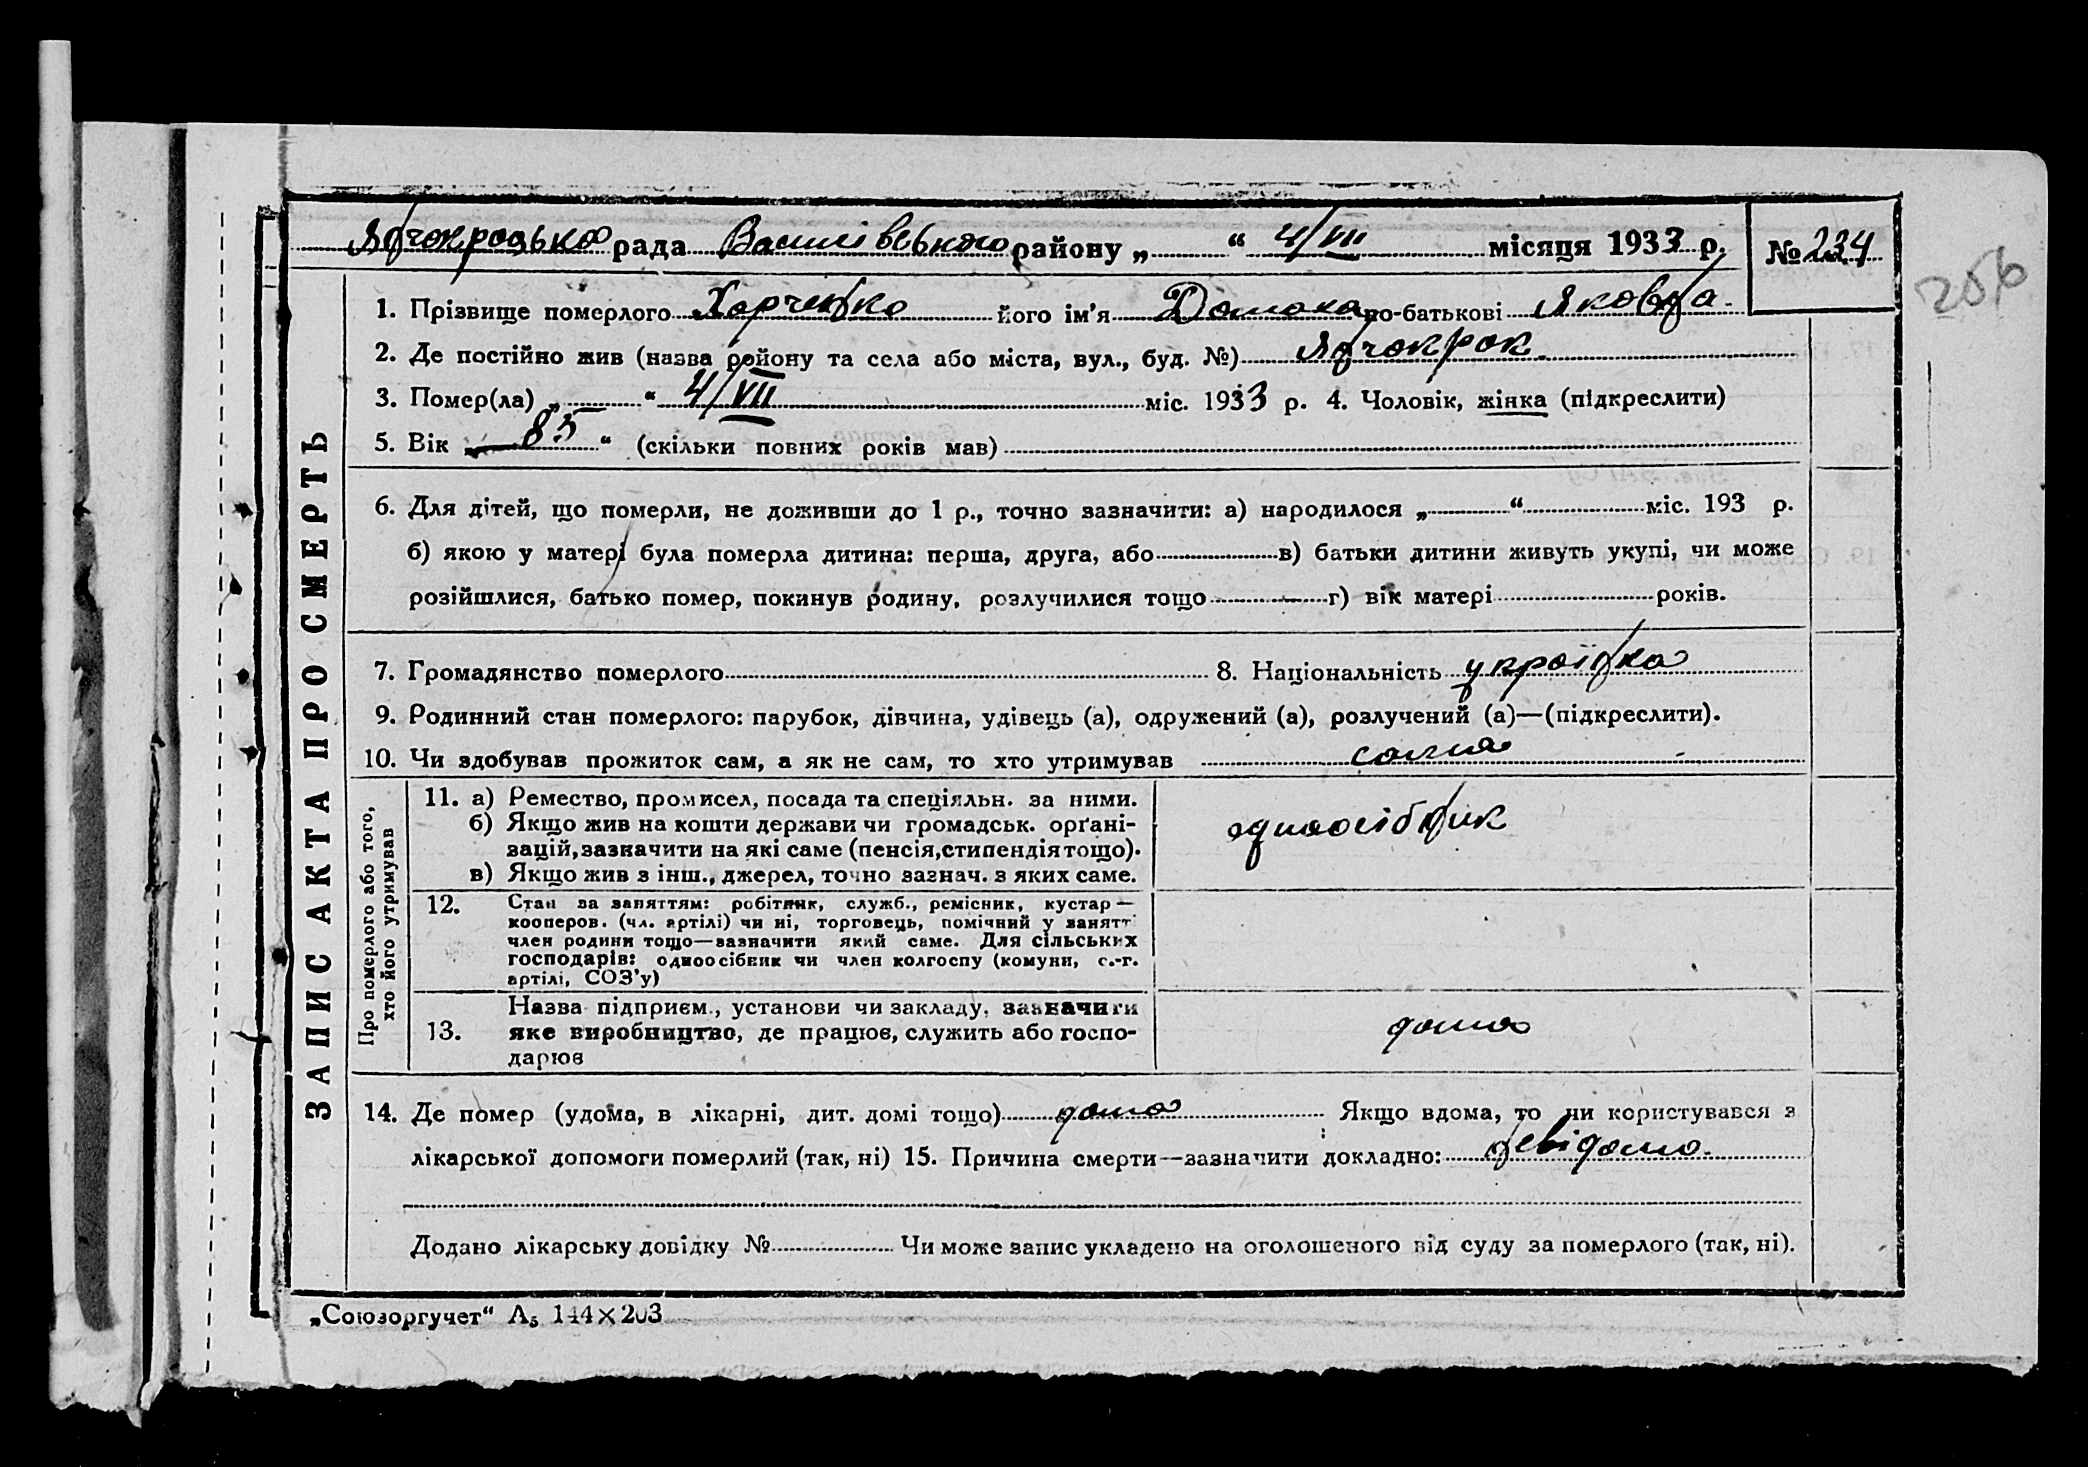 Янчокрацька рада Василівського району „ “ 4/VII місяця 1933 р. № 234
256
1. Прізвище померлого Харченко його ім'я Домаха по-батькові Яковна.
2. Де постійно жив (назва району та села або міста, вул., буд. №) Янчокрак.
3. Помер(ла) „ “ 4/VII міс. 1933 р. 4. Чоловік, жінка (підкреслити)
5. Вік „ 85 “ (скільки повних років мав)
6. Для дітей, що померли, не доживши до 1 р., точно зазначити: а) народилося „ “ міс. 193 р.
б) якою у матері була померла дитина: перша, друга, або в) батьки дитини живуть укупі, чи може
розійшлися, батько помер, покинув родину, розлучилися тощо г) вік матері років.
7. Громадянство померлого 8. Національність українка
9. Родинний стан померлого: парубок, дівчина, удівець (а), одружений (а), розлучений (а)—(підкреслити).
10. Чи здобував прожиток сам, а як не сам, то хто утримував сама
ЗАПИС АКТА ПРО СМЕРТЬ
Про померлого або того,
хто його утримував
11. а) Ремество, промисел, посада та спеціяльн. за ними.
б) Якщо жив на кошти держави чи громадськ. орґані-
зацій, зазначити на які саме (пенсія, стипендія тощо).
в) Якщо жив з інш., джерел, точно зазнач. з яких саме.
одноосібник
12. Стан за заняттям: робітник, служб., ремісник, кустар—
кооперов. (чл. артілі) чи ні, торговець, помічний у занятті
член родини тощо—зазначити який саме. Для сільських
господарів: одноосібник чи член колгоспу (комуни, с.-г.
артілі, СОЗ'у)
13. Назва підприєм., установи чи закладу, зазначити
яке виробництво, де працює, служить або госпо-
дарює
дома
14. Де помер (удома, в лікарні, дит. домі тощо) дома Якщо вдома, то чи користувався з
лікарської допомоги померлий (так, ні) 15. Причина смерти—зазначити докладно: невідомо.
Додано лікарську довідку № Чи може запис укладено на оголошеного від суду за померлого (так, ні).
„Союзоргучет“ А₅ 144×203